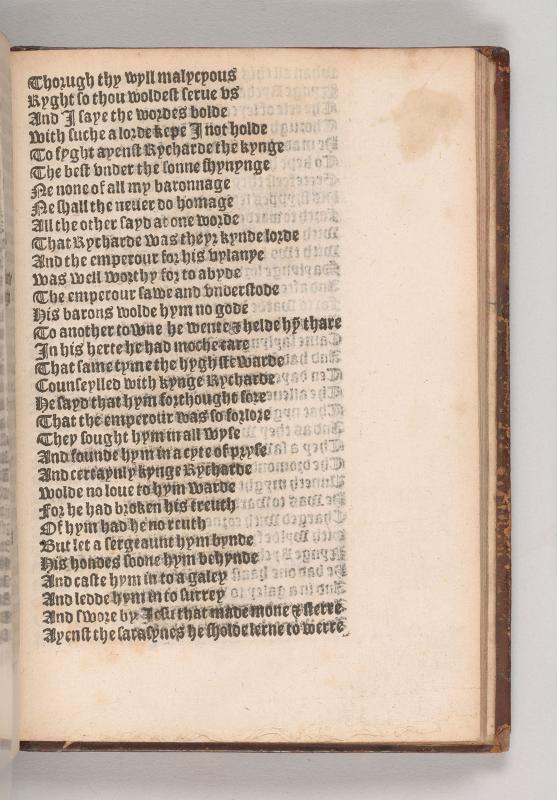 Thorugh thy wyll malycyous
Ryght so thou woldest serue vs
And I saye the wordes bolde
With suche a lorde kepe I not holde
To fyght ayenst Rycharde the kynge
The best vnder the sonne shynynge
Ne none of all my baronnage
Ne shall the neuer do homage
All the other sayd at one worde
That Rycharde was theyr kynde lorde
And the emperour for his vylanye
Was well worthy for to abyde
The emperour sawe and vnderstode
His barons wolde hym no gode
To another towne he wente & helde hỹ thare
In his herte he had moche care
That same tyme the hygh stewarde
Counseylled with kynge Rycharde
He sayd that hym forthought sore
That the emperour was so forlore
They sought hym in all wyse
And founde hym in a cyte of pryse
And certaynly kynge Rycharde
Wolde no loue to hym warde
For he had broken his treuth
Of hym had he no reuth
But let a sergeaunt hym bynde
His hondes soone hym behynde
And caste hym in to a galey
And ledde hym in to surrey
And swore by Iesu that made mone & sterre
Ayenst the sarasynes he sholde lerne to werre